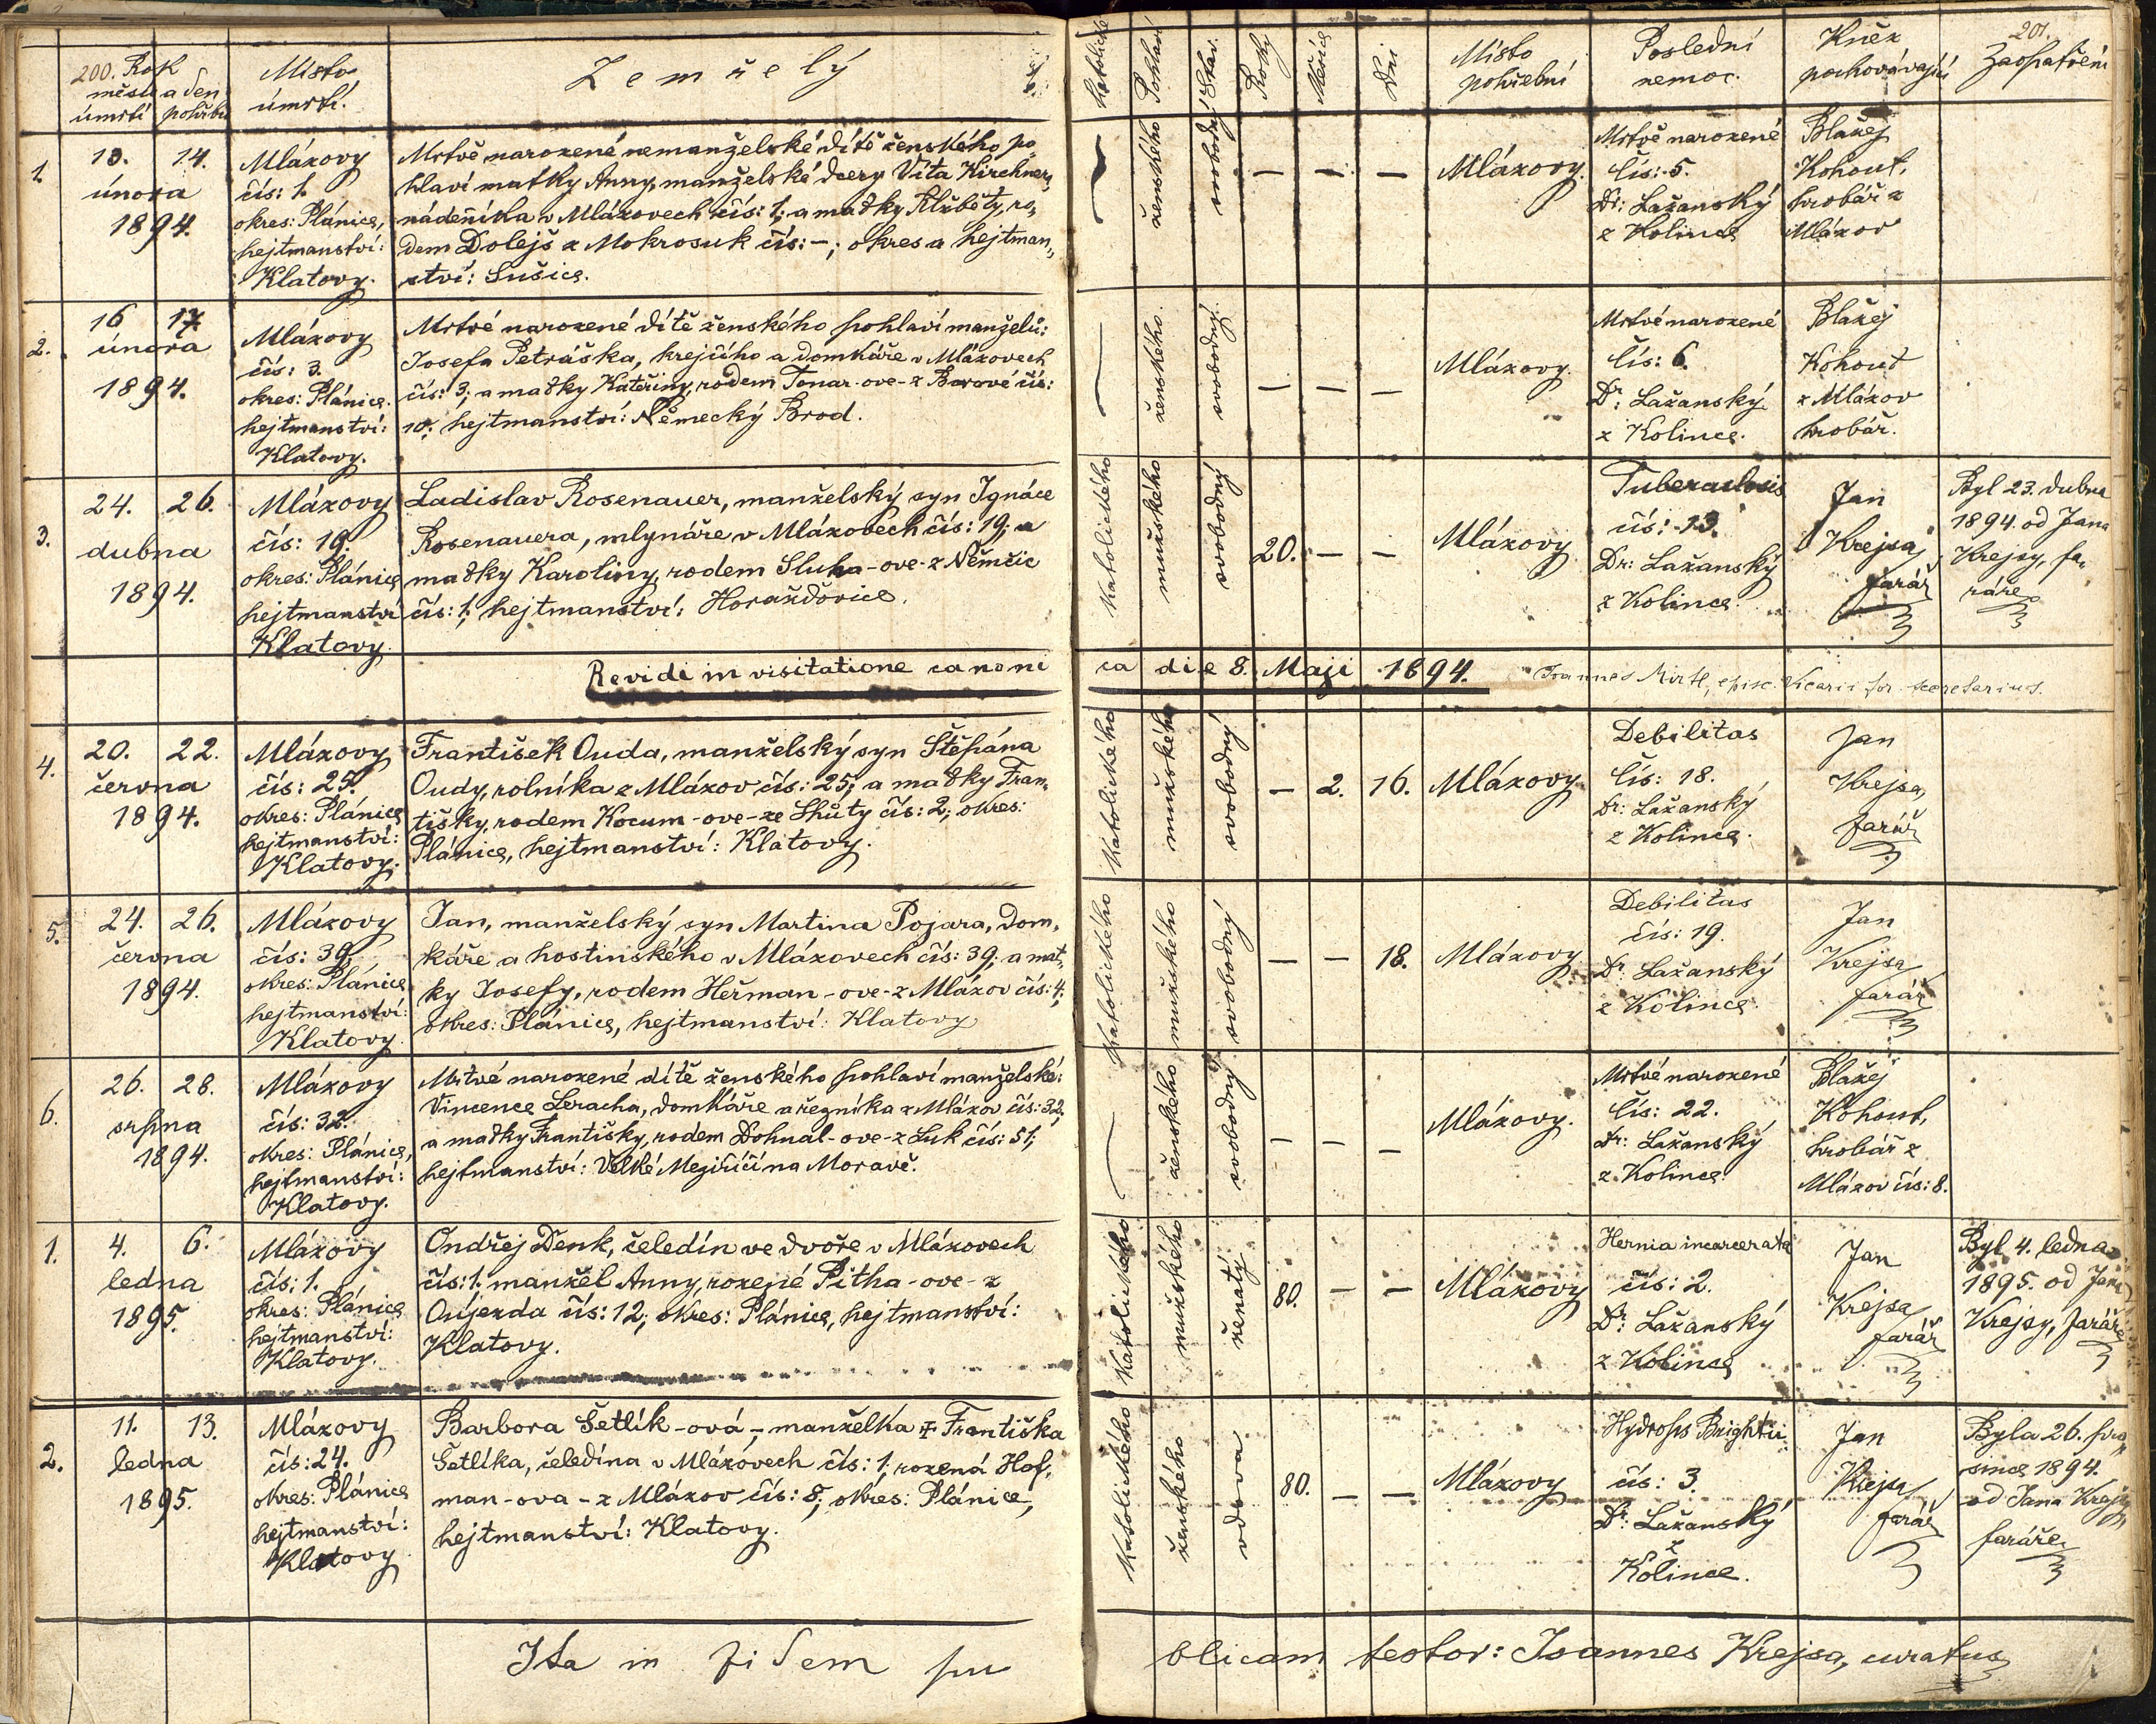 200. Rok
měsíc a den
úmrtí pohřbu
Místo
úmrtí.
Zemřelý
1.
13. 14.
února
1894.
Mlázovy
čís: 1.
okres: Plánice,
hejtmanství:
Klatovy.
Mrtvě narozené nemanželské dítě ženského po-
hlaví matky Anny, manželské dcery Víta Kirchnera,
nádeníka v Mlázovech čís: 1; a matky Alžběty, ro-
dem Dolejš z Mokrosuk čís: –; okres a hejtman-
ství: Sušice.
2.
16 17
února
1894.
Mlázovy
čís: 3.
okres: Plánice.
hejtmanství:
Klatovy.
Mrtvé narozené dítě ženského pohlaví manželů:
Josefa Petráška, krejčího a domkáře v Mlázovech
čís: 3; a matky Kateřiny, rodem Tonar-ove- z Borové čís:
10; hejtmanství: Německý Brod.
3.
24. 26.
dubna
1894.
Mlázovy
čís: 19.
okres: Plánice
hejtmanství
Klatovy.
Ladislav Rosenauer, manželský syn Ignáce
Rosenauera, mlynáře v Mlázovech čís: 19; a
matky Karoliny, rodem Sluka-ove- z Němčic
čís: 1; hejtmanství: Horažďovice.
Revidi in visitatione canoni
4.
20. 22.
června
1894.
Mlázovy
čís: 25.
okres: Plánice
hejtmanství:
Klatovy.
František Ouda, manželský syn Štěpána
Oudy, rolníka z Mlázov čís: 25; a matky Fran-
tišky, rodem Kocum-ove- ze Lhůty čís: 2; okres:
Plánice, hejtmanství: Klatovy.
5.
24. 26.
června
1894.
Mlázovy
čís: 39.
okres: Plánice
hejtmanství:
Klatovy.
Jan, manželský syn Martina Pojara, dom-
káře a hostinského v Mlázovech čís: 39; a mat-
ky Josefy, rodem Heřman-ove- z Mlázov čís: 4;
okres: Plánice, hejtmanství: Klatovy
6.
26. 28.
srpna
1894.
Mlázovy
čís: 32.
okres: Plánice,
hejtmanství:
Klatovy.
Mrtvé narozené dítě ženského pohlaví manželské:
Vincence Leracha, domkáře a řezníka z Mlázov čís: 32,
a matky Františky, rodem Dohnal-ove- z Luk čís: 51;
hejtmanství: Velké Meziříčí na Moravě.
1.
4. 6.
ledna
1895.
Mlázovy
čís: 1.
okres: Plánice
hejtmanství:
Klatovy.
Ondřej Denk, čeledín ve dvoře v Mlázovech
čís: 1. manžel Anny, rozené Pitha-ove- z
Oujezda čís: 12; okres: Plánice, hejtmanství:
Klatovy.
2.
11. 13.
ledna
1895.
Mlázovy
čís: 24.
okres: Plánice
hejtmanství:
Klatovy
Barbora Šetlík-ová, – manželka ‡ Františka
Šetlíka, čeledína v Mlázovech čís: 1, rozená Hof-
man-ova- z Mlázov čís: 8; okres: Plánice,
hejtmanství: Klatovy.
Ita in fidem pu
201.
Katolické
Pohlaví
Stav.
Roky
Měsíce
Dni
Místo
pohřební
Poslední
nemoc.
Kněz
pochovávající
Zaopatření
ženského
svobodný
– – –
Mlázovy.
Mrtvě narozené
čís: 5.
Dr: Lažanský
z Kolince
Blažej
Kohout,
hrobář z
Mlázov
ženského.
svobodný.
– – –
Mlázovy.
Mrtvé narozené
čís: 6.
Dr: Lažanský
z Kolince.
Blažej
Kohout
z Mlázov
hrobář.
Katolického
mužského
svobodný
20. – –
Mlázovy
Tuberculosis
čís: 13.
Dr: Lažanský
z Kolince.
Jan
Krejsa,
farář
Byl 23. dubna
1894. od Jana
Krejsy, fa-
ráře.
ca die 8. Maji 1894. Joannes Mirtl, episc. Vicarii for. secretarius.
Katolického
mužského
svobodný
– 2. 16.
Mlázovy.
Debilitas
čís: 18.
Dr: Lažanský
z Kolince.
Jan
Krejsa,
farář
Katolického
mužského
svobodný
– – 18.
Mlázovy
Debilitas
čís: 19.
Dr: Lažanský
z Kolince.
Jan
Krejsa
farář
ženského
svobodný
– – –
Mlázovy.
Mrtvé narozené
čís: 22.
Dr: Lažanský
z Kolince.
Blažej
Kohout,
hrobář z
Mlázov čís: 8.
Katolického
mužského
ženatý
80. – –
Mlázovy
Hernia incarcerata
čís: 2.
Dr: Lažanský
z Kolince
Jan
Krejsa
farář
Byl 4. ledna
1895. od Jana
Krejsy, faráře
Katolického
ženského
vdova
80. – –
Mlázovy
Hydrops Brightii
čís: 3.
Dr: Lažanský
z
Kolince.
Jan
Krejsa
farář
Byla 26. pro-
since 1894.
od Jana Krejsy,
faráře
blicam testor: Joannes Krejsa, curatus